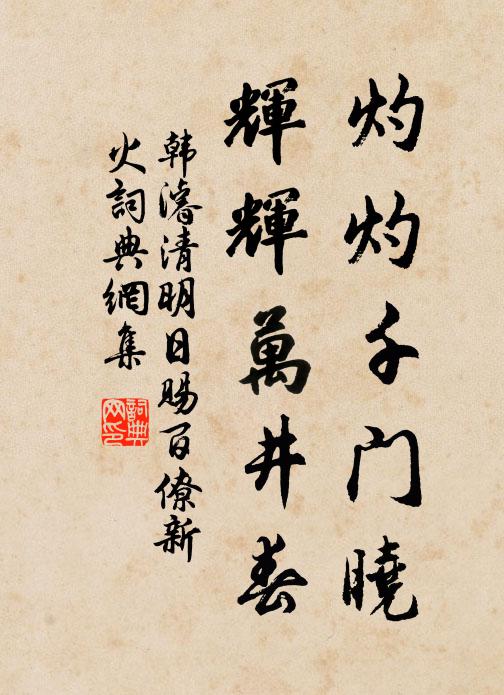 灼灼千门曉
輝輝萬井春
韩濬清明日赐百僚新
火詞典網集
詞典网印